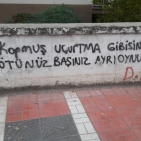 Kopmuş uçurtma gibisin
ötünüz başınız ayrı oynu